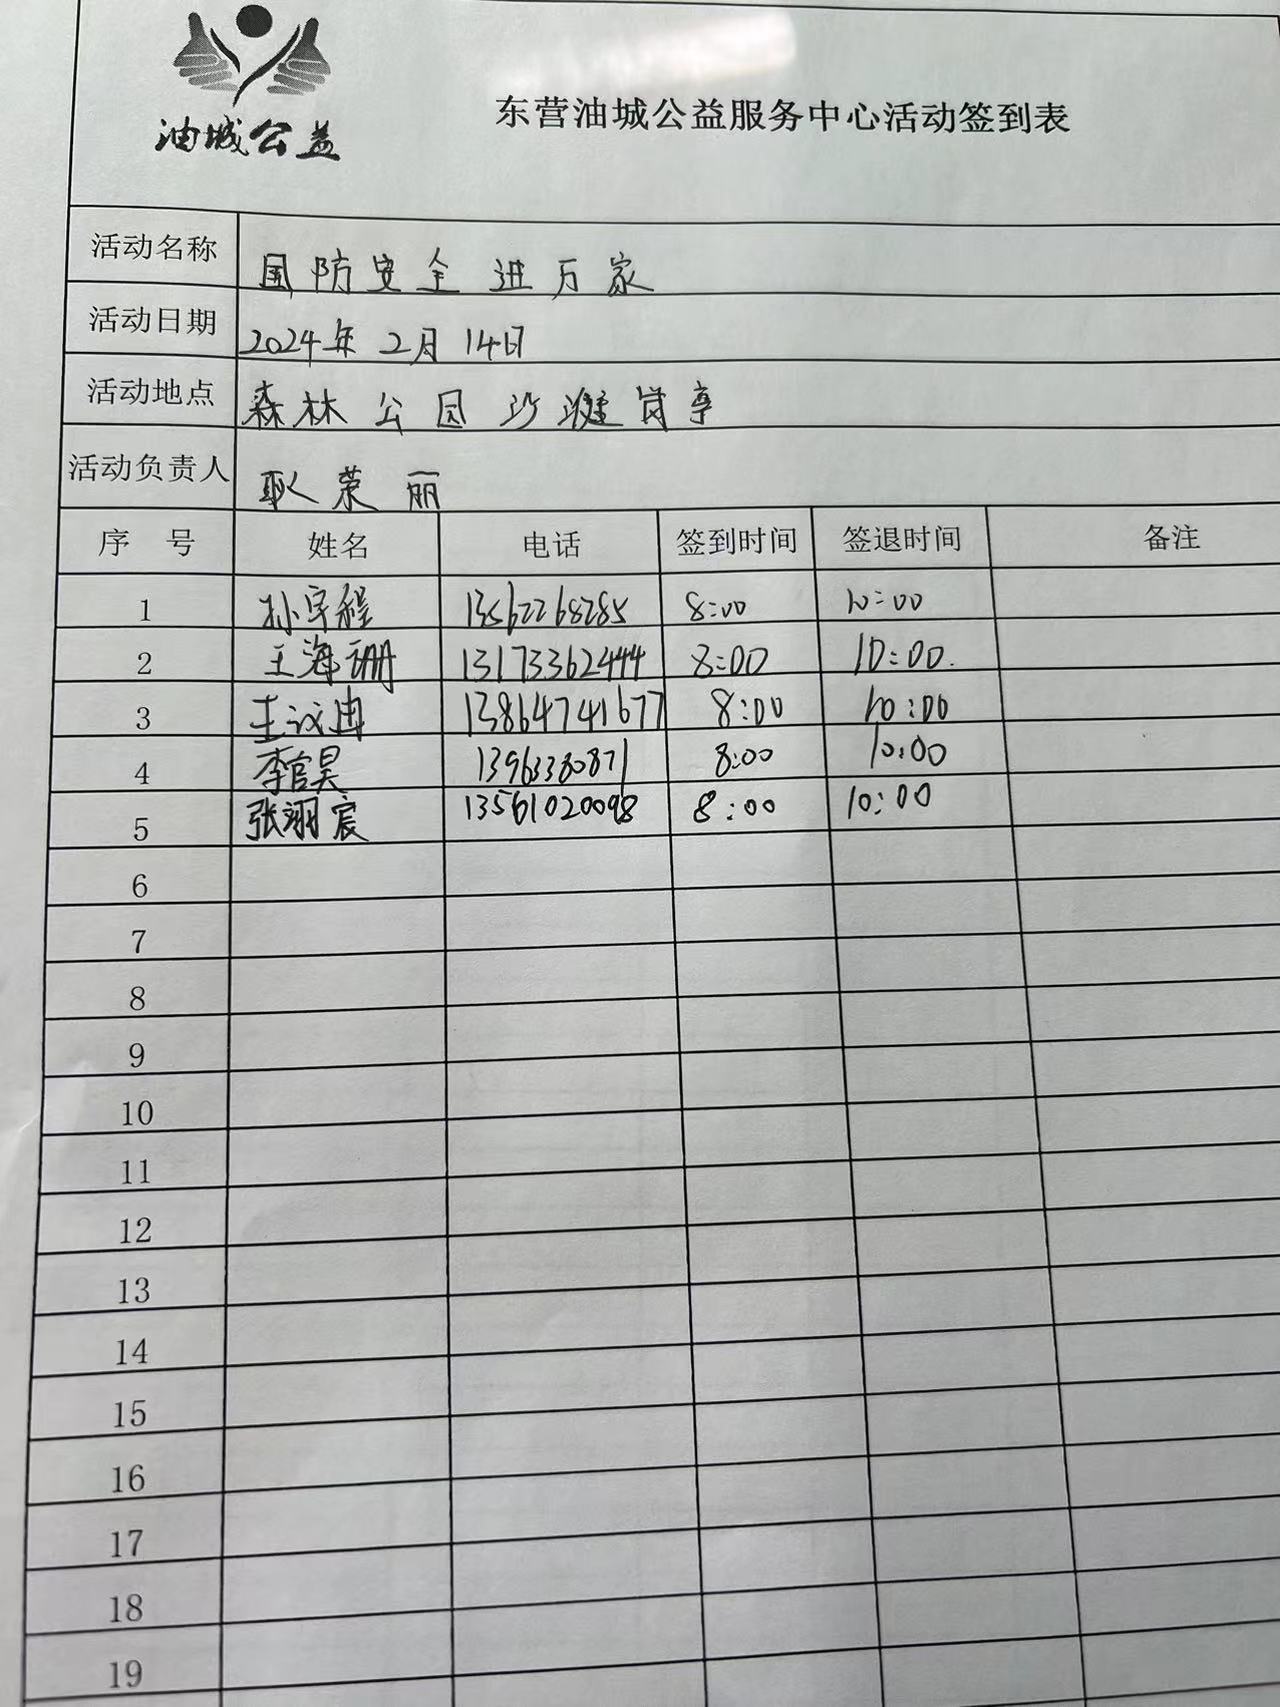 油城公益
东营油城公益服务中心活动签到表
活动名称 国防安全进万家
活动日期 2024年2月14日
活动地点 森林公园沙滩岗亭
活动负责人 耿荣丽
序号 姓名 电话 签到时间 签退时间 备注
1 孙宇程 13562268285 8:00 10:00
2 王海珊 13173362444 8:00 10:00.
3 13864741677 8:00 10:00
4 李官昊 13963380871 8:00 10:00
5 张翊宸 13561020098 8:00 10:00
6
7
8
9
10
11
12
13
14
15
16
17
18
19